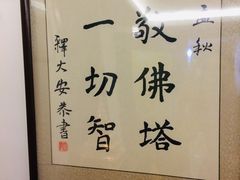 孟秋
敬佛塔
一切智
釋大安恭書